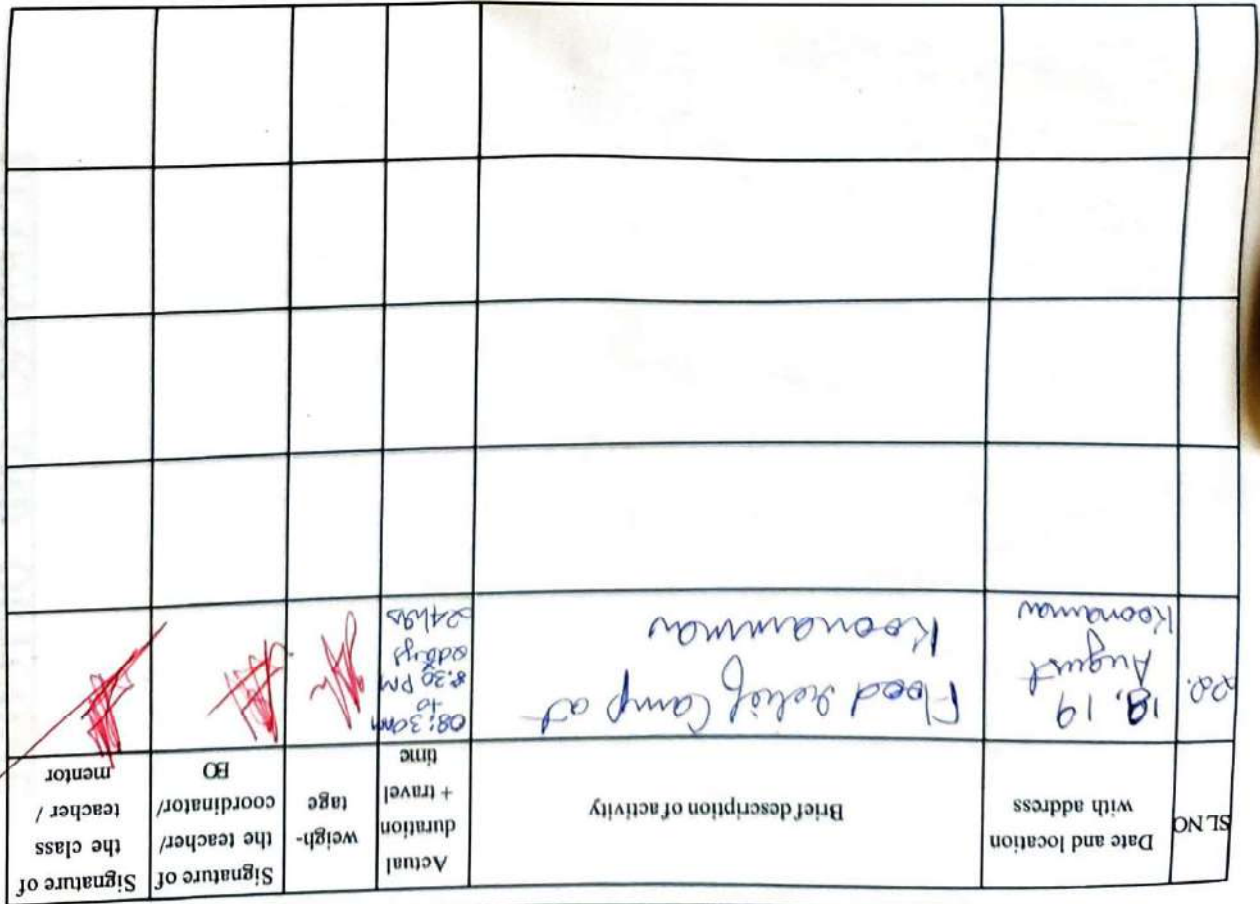 SL.NO
Date and location
with address
Brief description of activity
Actual
duration
+ travel
time
weigh-
tage
Signature of
the teacher/
coordinator/
EO
Signature of
the class
teacher /
mentor
22.
18, 19
August
Koonammav
Flood relief Camp at
Koonammav
08:30am
to
8.30 PM
2 days
24hrs